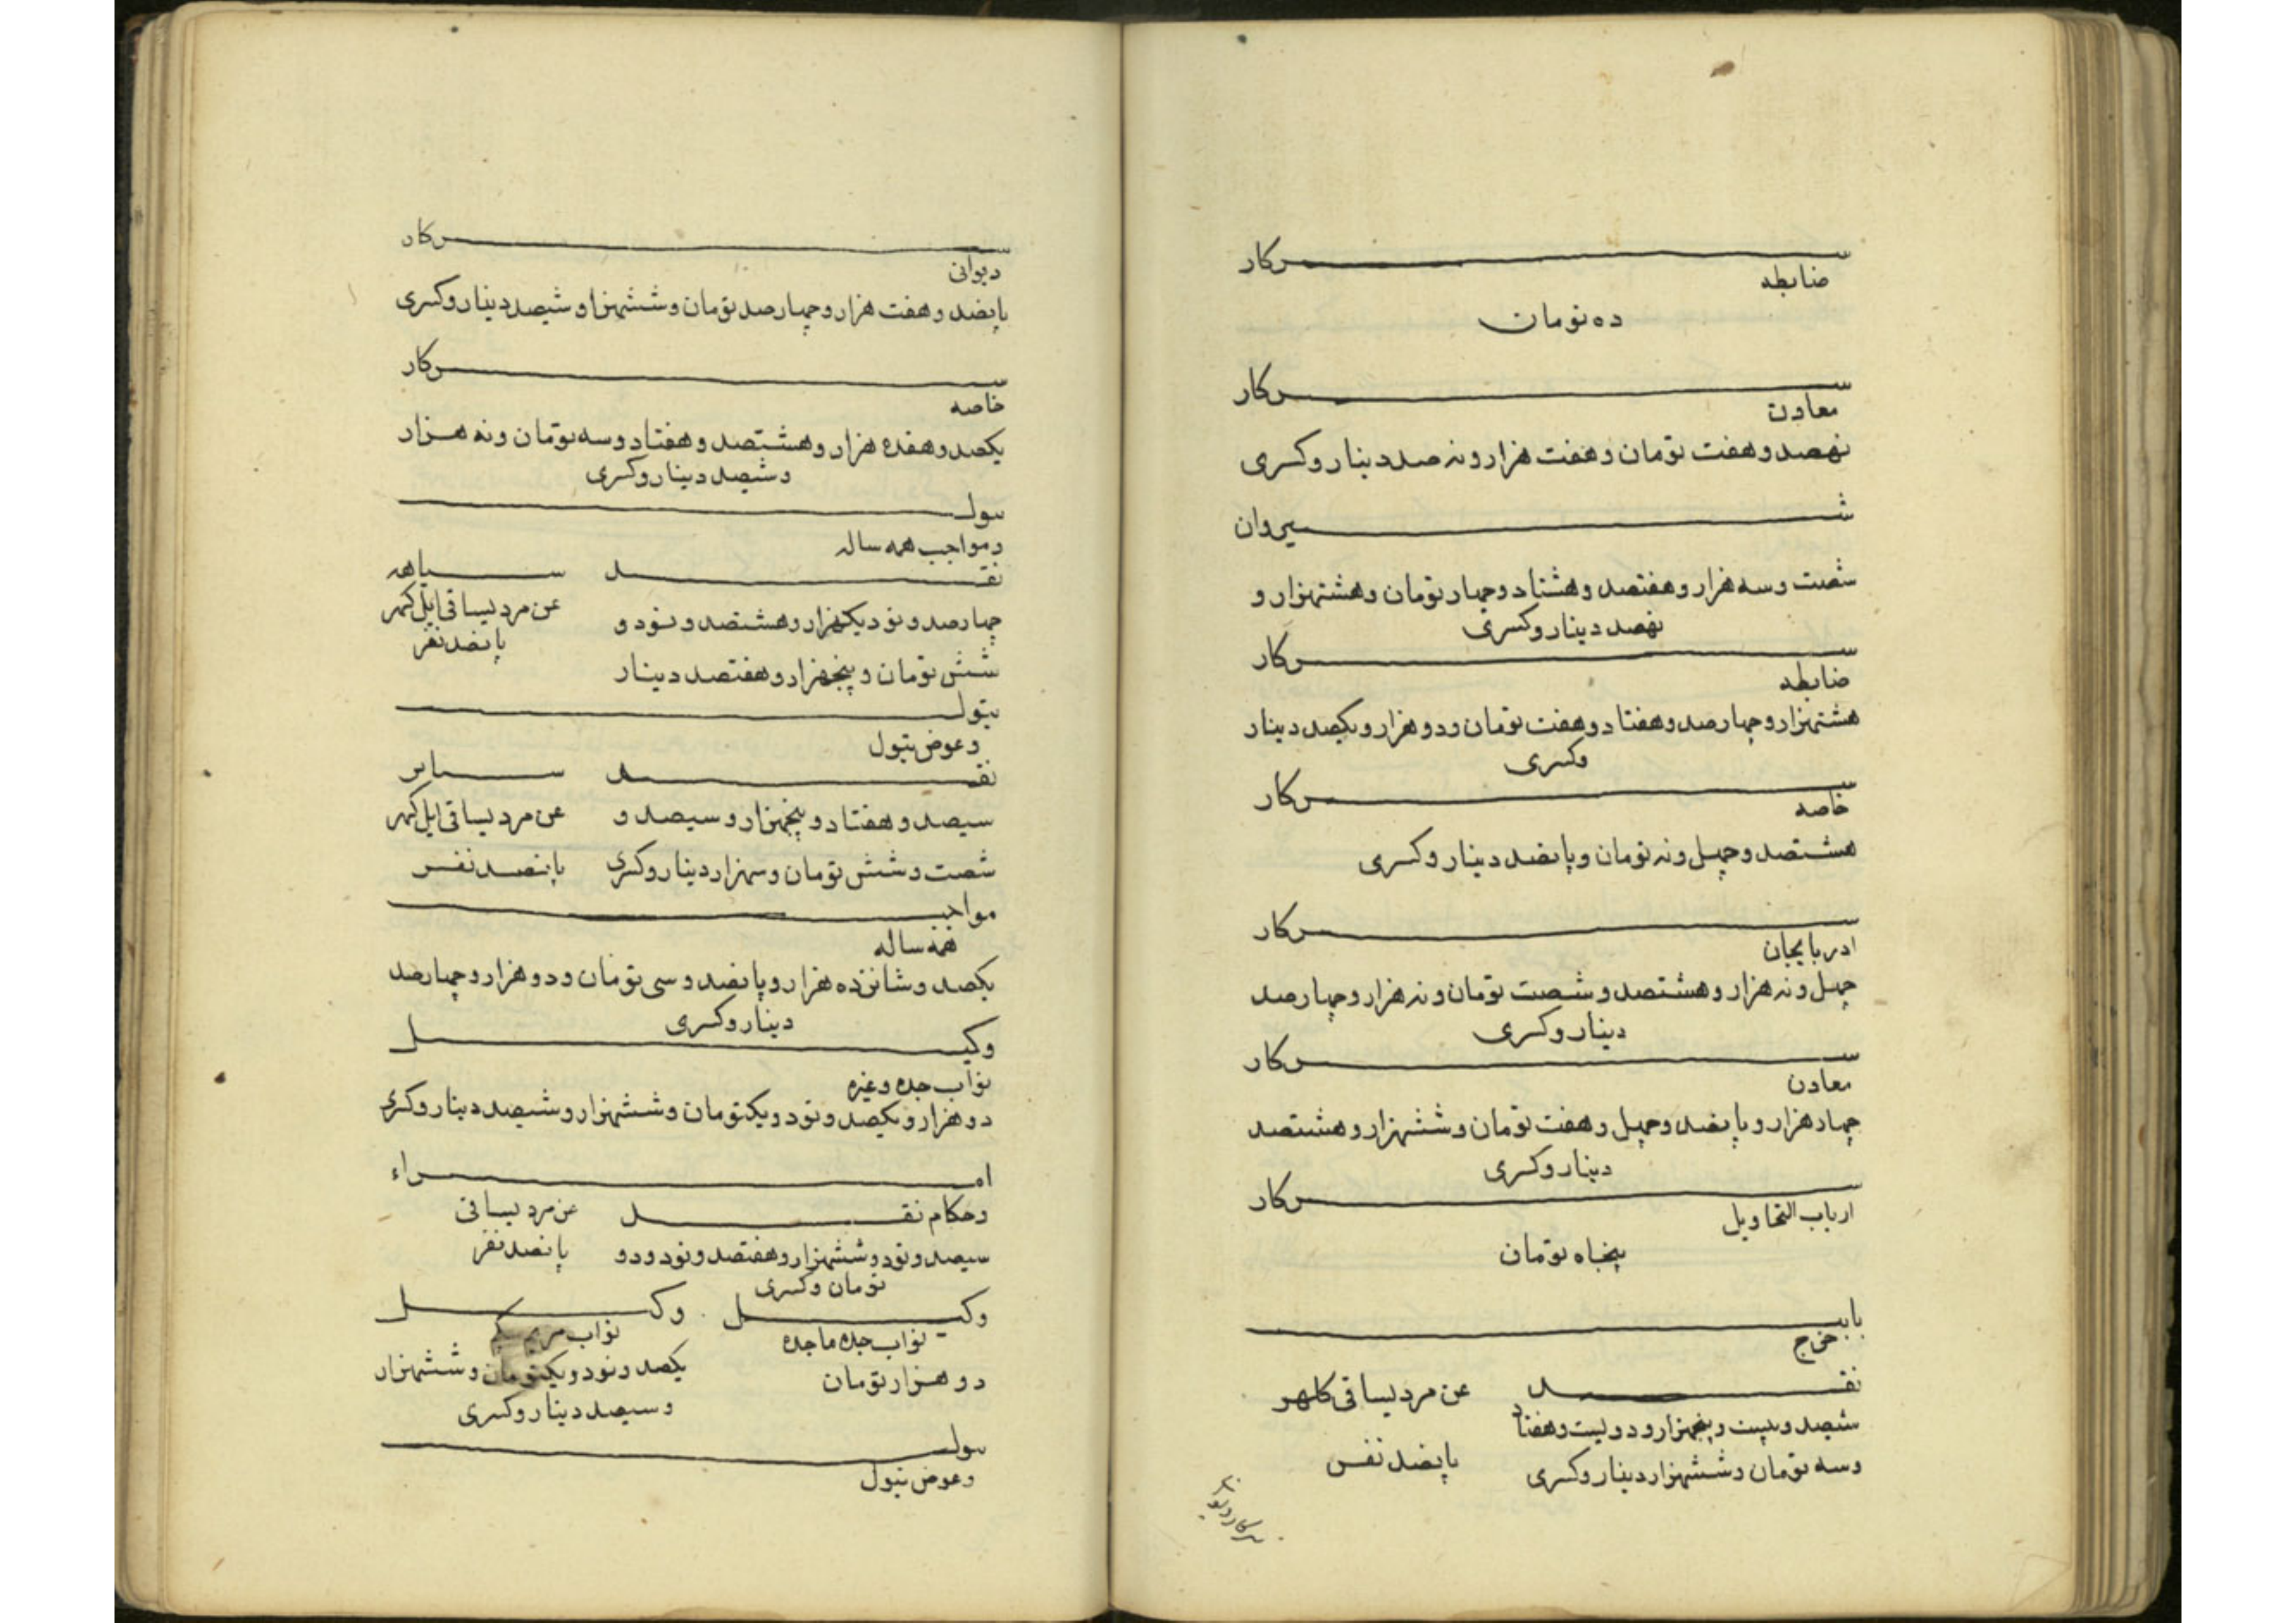 سرکار
ضابطه
ده تومان
سرکار
معادن
نهصد و هفت تومان و هفت هزار و نه صد دینار و کسری
شیروان
شصت و سه هزار و هفتصد و هشتاد و چهار تومان و هشتهزار و
نهصد دینار و کسری
سرکار
ضابطه
هشتهزار و چهارصد و هفتاد و هفت تومان و دو هزار و یکصد دینار
و کسری
سرکار
خاصه
هشتصد و چهل و نه تومان و پانصد دینار و کسری
سرکار
ادربایجان
چهل و نه هزار و هشتصد و شصت تومان و نه هزار و چهارصد
دینار و کسری
سرکار
معادن
چهار هزار و پانصد و چهل و هفت تومان و ششهزار و هشتصد
دینار و کسری
سرکار
ارباب التحاویل
پنجاه تومان
بابت
خرج
نقد
ششصد و بیست و پنجهزار و دویست و هفتاد
و سه تومان و ششهزار دینار و کسری
عن مرد یساقی کلهر
پانصد نفر
سرکار دیوانی
سرکار
دیوانی
پانصد و هفت هزار و چهارصد تومان و ششهزار و ششصد دینار و کسری
سرکار
خاصه
یکصد و هفده هزار و هشتصد و هفتاد و سه تومان و نه هزار
و ششصد دینار و کسری
تیول
و مواجب همه ساله
نقد
چهارصد و نود یکهزار و هشتصد و نود و
شش تومان و پنجهزار و هفتصد دینار
سیاهه
عن مرد یساقی ایل کلهر
پانصد نفر
تیول
و عوض تیول
نقد
سیصد و هفتاد و پنجهزار و سیصد و
شصت و شش تومان و سهزار دینار و کسری
سایر
عن مرد یساقی ایل کلهر
پانصد نفر
مواجب
همه ساله
یکصد و شانزده هزار و پانصد و سی تومان و دو هزار و چهارصد
دینار و کسری
وکیل
نواب جده و غیره
دو هزار و یکصد و نود و یکتومان و ششهزار و ششصد دینار و کسری
امراء
و حکام نقد
سیصد و نود و ششهزار و هفتصد و نود و دو
تومان و کسری
عن مرد یساقی
پانصد نفر
وکیل
نواب جده ماجده
دو هزار تومان
وکیل
نواب مریم بیکم
یکصد و نود و یکتومان و ششهزار
و سیصد دینار و کسری
تیول
و عوض تیول